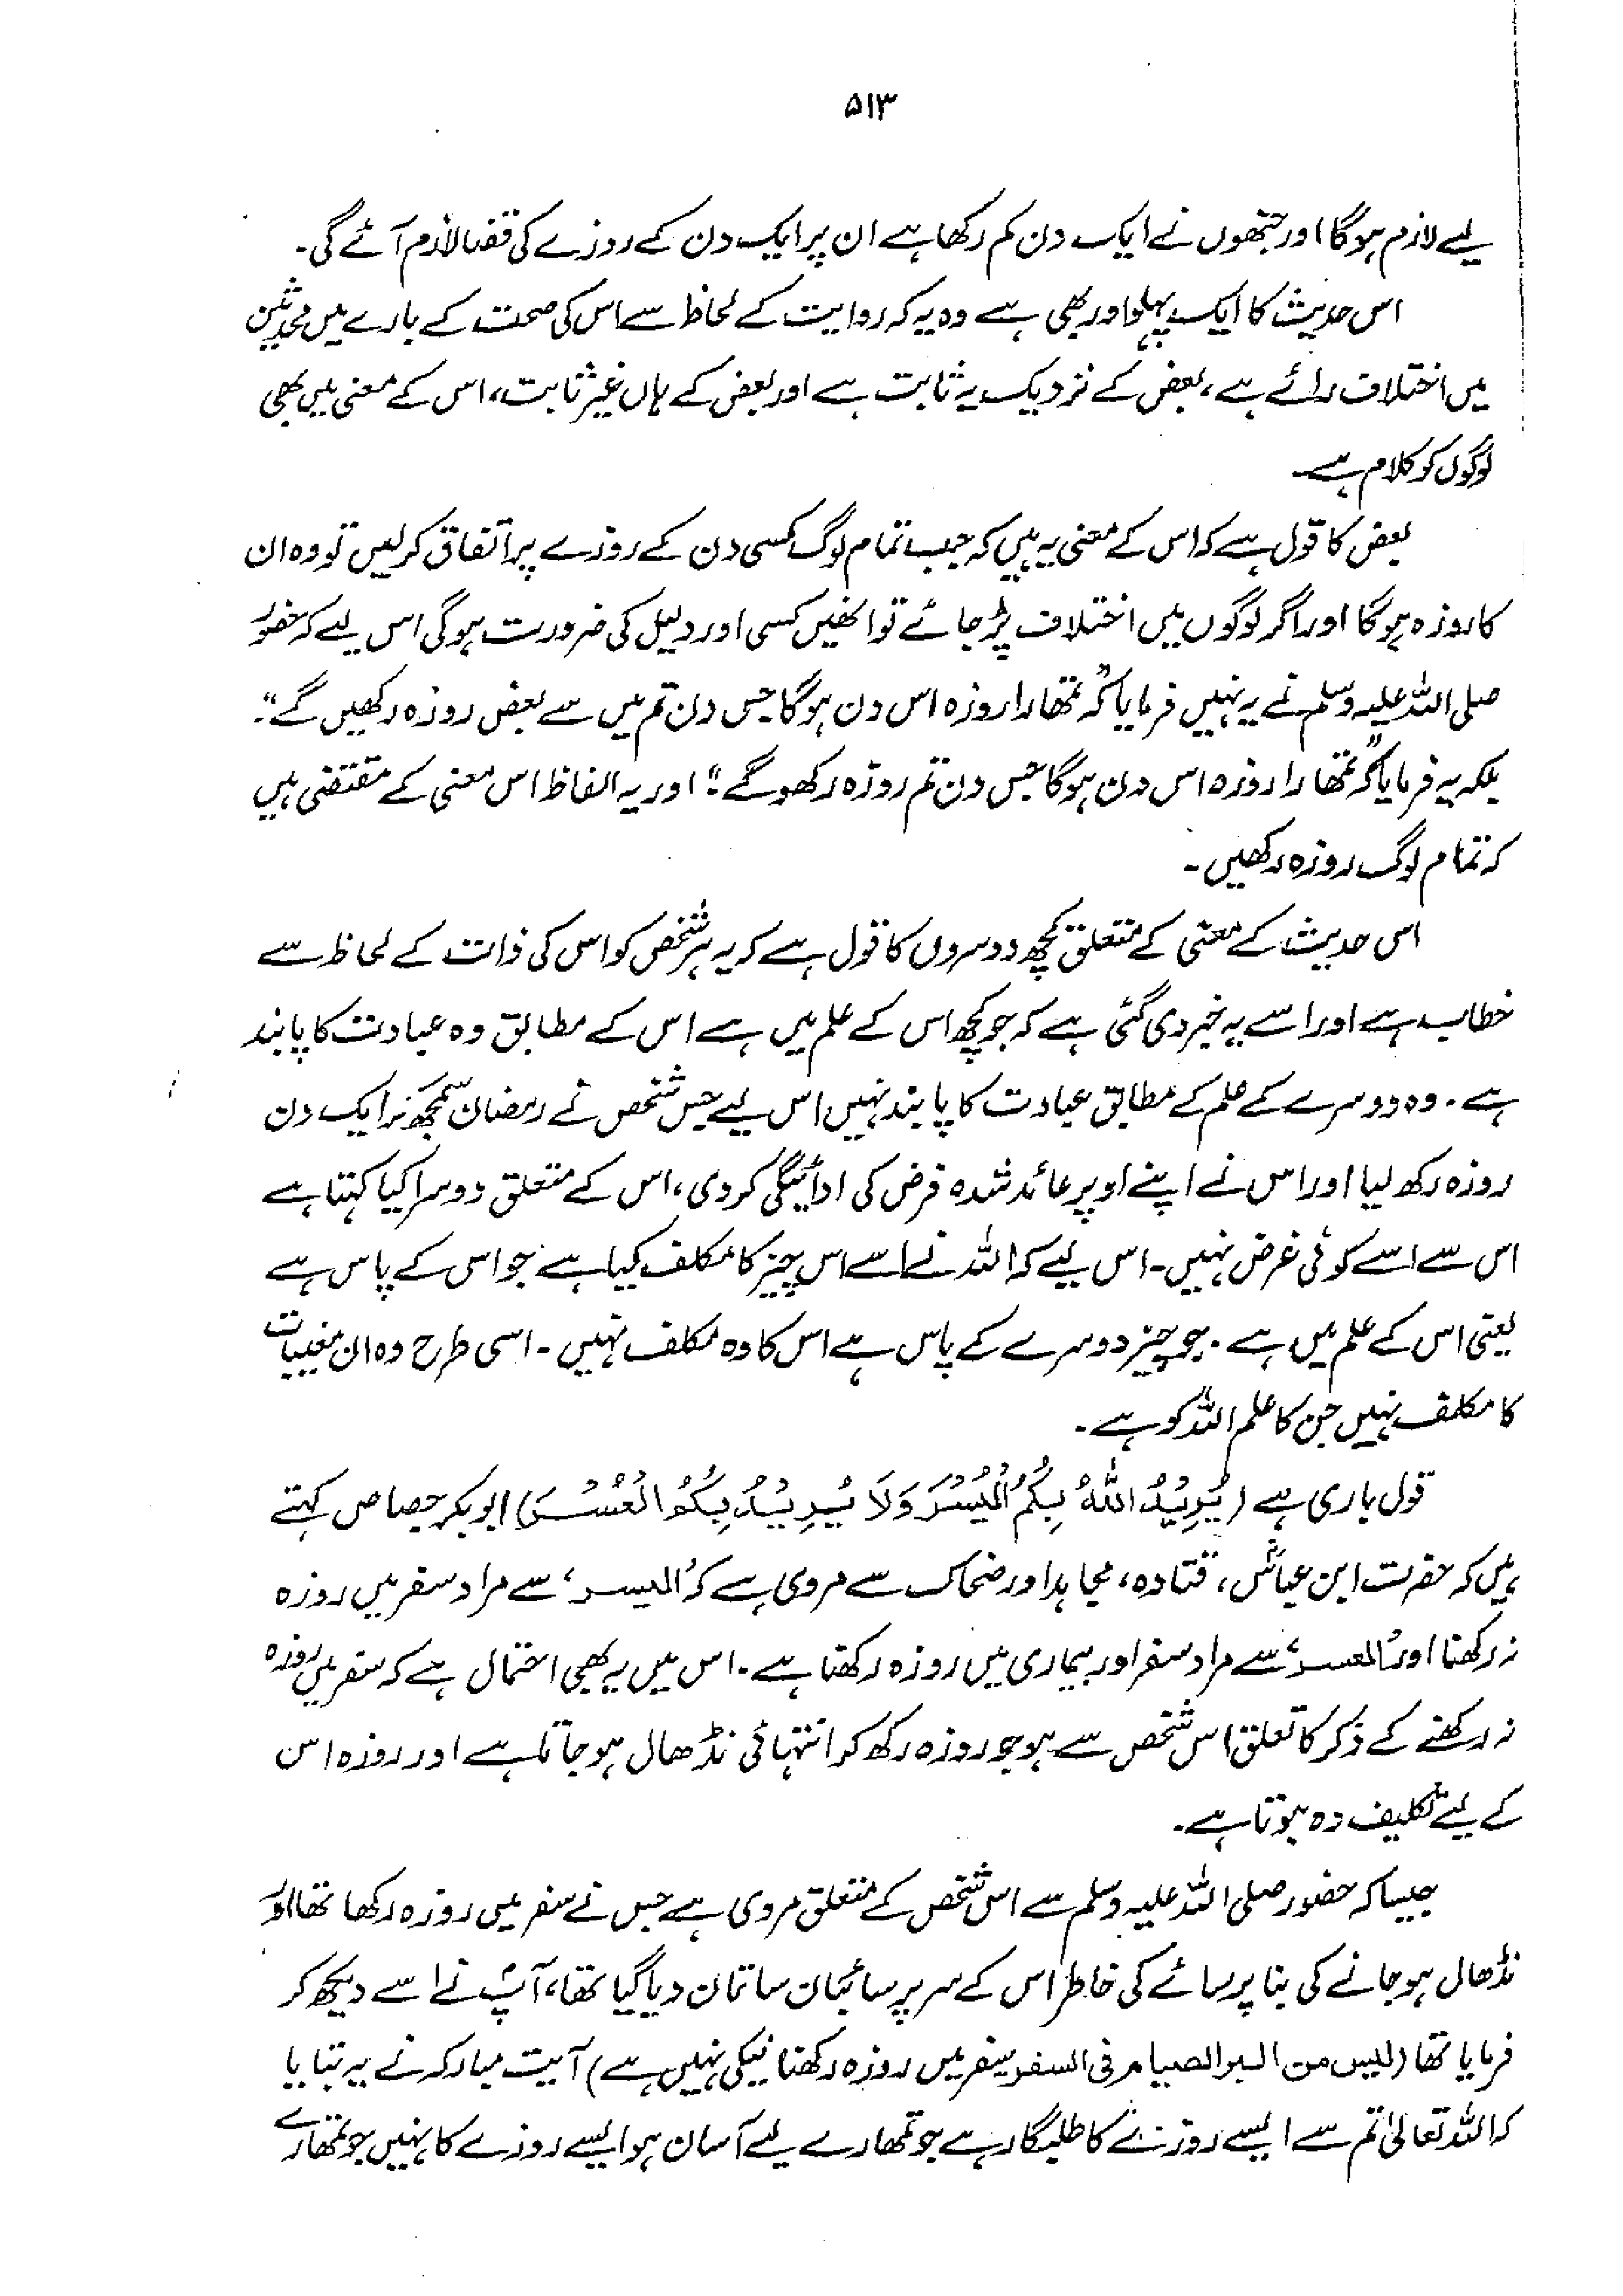 ۵۱۳
لیے لازم ہوگا اور جنھوں نے ایک دن کم رکھا ہے ان پر ایک دن کے روزے کی قضا لازم آئے گی۔
اس حدیث کا ایک پہلو اور بھی ہے وہ یہ کہ روایت کے لحاظ سے اس کی صحت کے بارے میں محدثین
میں اختلاف رائے ہے، بعض کے نزدیک یہ ثابت ہے اور بعض کے ہاں غیر ثابت، اس کے معنی میں بھی
لوگوں کو کلام ہے۔
بعض کا قول ہے کہ اس کے معنی یہ ہیں کہ جب تمام لوگ کسی دن کے روزے پر اتفاق کر لیں تو وہ ان
کا روزہ ہوگا اور اگر لوگوں میں اختلاف پڑ جائے تو انھیں کسی اور دلیل کی ضرورت ہوگی اس لیے کہ حضور
صلی اللہ علیہ وسلم نے یہ نہیں فرمایا کہ "تمھارا روزہ اس دن ہوگا جس دن تم میں سے بعض روزہ رکھیں گے"۔
بلکہ یہ فرمایا کہ "تمھارا روزہ اس دن ہوگا جس دن تم روزہ رکھو گے" اور یہ الفاظ اس معنی کے مقتضی ہیں
کہ تمام لوگ روزہ رکھیں۔
اس حدیث کے معنی کے متعلق کچھ دوسروں کا قول ہے کہ یہ ہر شخص کو اس کی ذات کے لحاظ سے
خطاب ہے اور اسے یہ خبر دی گئی ہے کہ جو کچھ اس کے علم میں ہے اس کے مطابق وہ عبادت کا پابند
ہے۔ وہ دوسرے کے علم کے مطابق عبادت کا پابند نہیں اس لیے جس شخص نے رمضان سمجھ کر ایک دن
روزہ رکھ لیا اور اس نے اپنے اوپر عائد شدہ فرض کی ادائیگی کر دی، اس کے متعلق دوسرا کیا کہتا ہے
اس سے اسے کوئی غرض نہیں۔ اس لیے کہ اللہ نے اسے اس چیز کا مکلف کیا ہے جو اس کے پاس ہے
یعنی اس کے علم میں ہے۔ جو چیز دوسرے کے پاس ہے اس کا وہ مکلف نہیں۔ اسی طرح وہ ان مغیبات
کا مکلف نہیں جن کا علم اللہ کو ہے۔
قول باری ہے (یُرِیْدُ اللہُ بِکُمُ الْیُسْرَ وَلَا یُرِیْدُ بِکُمُ الْعُسْرَ) ابوبکر جصاص کہتے
ہیں کہ حضرت ابن عباسؓ، قتادہ، مجاہد اور ضحاک سے مروی ہے کہ 'الیسر' سے مراد سفر میں روزہ
نہ رکھنا اور 'العسر' سے مراد سفر اور بیماری میں روزہ رکھنا ہے۔ اس میں یہ بھی احتمال ہے کہ سفر میں روزہ
نہ رکھنے کے ذکر کا تعلق اس شخص سے ہو جو روزہ رکھ کر انتہائی نڈھال ہو جاتا ہے اور روزہ اس
کے لیے تکلیف دہ ہوتا ہے۔
جیسا کہ حضور صلی اللہ علیہ وسلم سے اس شخص کے متعلق مروی ہے جس نے سفر میں روزہ رکھا تھا اور
نڈھال ہو جانے کی بنا پر سائے کی خاطر اس کے سر پر سائبان سا تان دیا گیا تھا، آپؐ نے اسے دیکھ کر
فرمایا تھا (لیس من البر الصیام فی السفر سفر میں روزہ رکھنا نیکی نہیں ہے) آیت مبارکہ نے یہ بتایا
کہ اللہ تعالیٰ تم سے ایسے روزے کا طلبگار ہے جو تمھارے لیے آسان ہو ایسے روزے کا نہیں جو تمھارے